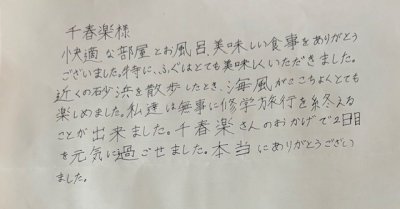 千春楽様
快適な部屋とお風呂、美味しい食事をありがとう
ございました。特に、ふぐはとても美味しくいただきました。
近くの砂浜を散歩したとき、海風がここちよくとても
楽しめました。私達は無事に修学旅行を終える
ことが出来ました。千春楽さんのおかげで2日目
を元気に過ごせました。本当にありがとうござい
ました。